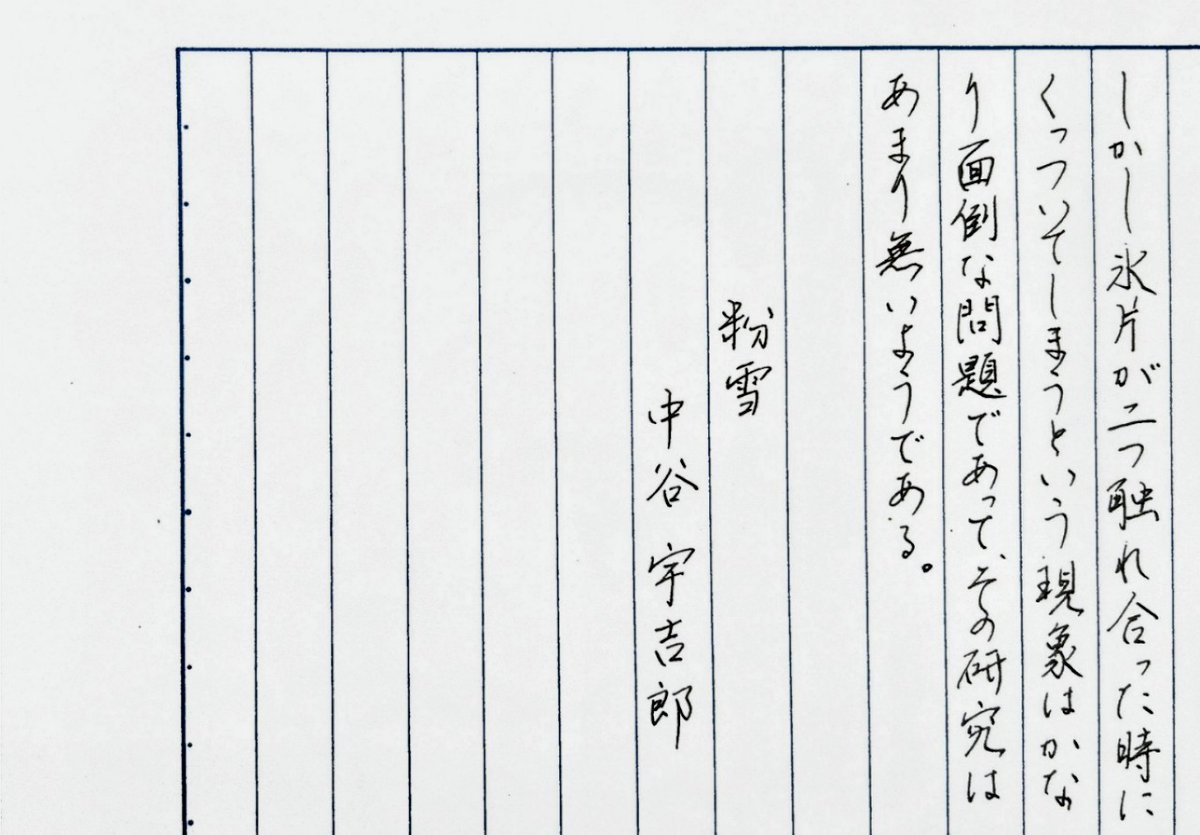 しかし氷片が二つ触れ合った時に
くっついてしまうという現象はかな
り面倒な問題であって、その研究は
あまり無いようである。
粉雪
中谷 宇吉郎